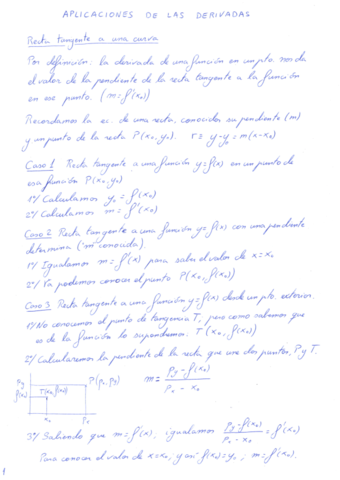 APLICACIONES DE LAS DERIVADAS
Recta tangente a una curva
Por definición: la derivada de una función en un pto. nos da
el valor de la pendiente de la recta tangente a la función
en ese punto. (m = f'(x₀))
Recordamos la ec. de una recta, conocidos su pendiente (m)
y un punto de la recta P(x₀, y₀). r ≡ y - y₀ = m(x - x₀)
Caso 1 Recta tangente a una función y = f(x) en un punto de
esa función P(x₀, y₀)
1º/ Calculamos y₀ = f(x₀)
2º/ Calculamos m = f'(x₀)
Caso 2 Recta tangente a una función y = f(x) con una pendiente
determina ("m" conocida).
1º/ Igualamos m = f'(x) para saber el valor de x = x₀
2º/ Ya podemos conocer el punto P(x₀, f(x₀))
Caso 3 Recta tangente a una función y = f(x) desde un pto. exterior.
1º/ No conocemos el punto de tangencia T, pero como sabemos que
es de la función lo supondremos. T(x₀, f(x₀))
2º/ Calcularemos la pendiente de la recta que une dos puntos, P y T.
Py
f(x₀)
T(x₀, f(x₀))
P(pₓ, py)
x₀
Pₓ
m = (Py - f(x₀)) / (Pₓ - x₀)
3º/ Sabiendo que m = f'(x), igualamos (Py - f(x₀)) / (Pₓ - x₀) = f'(x₀)
Para conocer el valor de x = x₀, y así f(x₀) = y₀ ; m = f'(x₀).
1